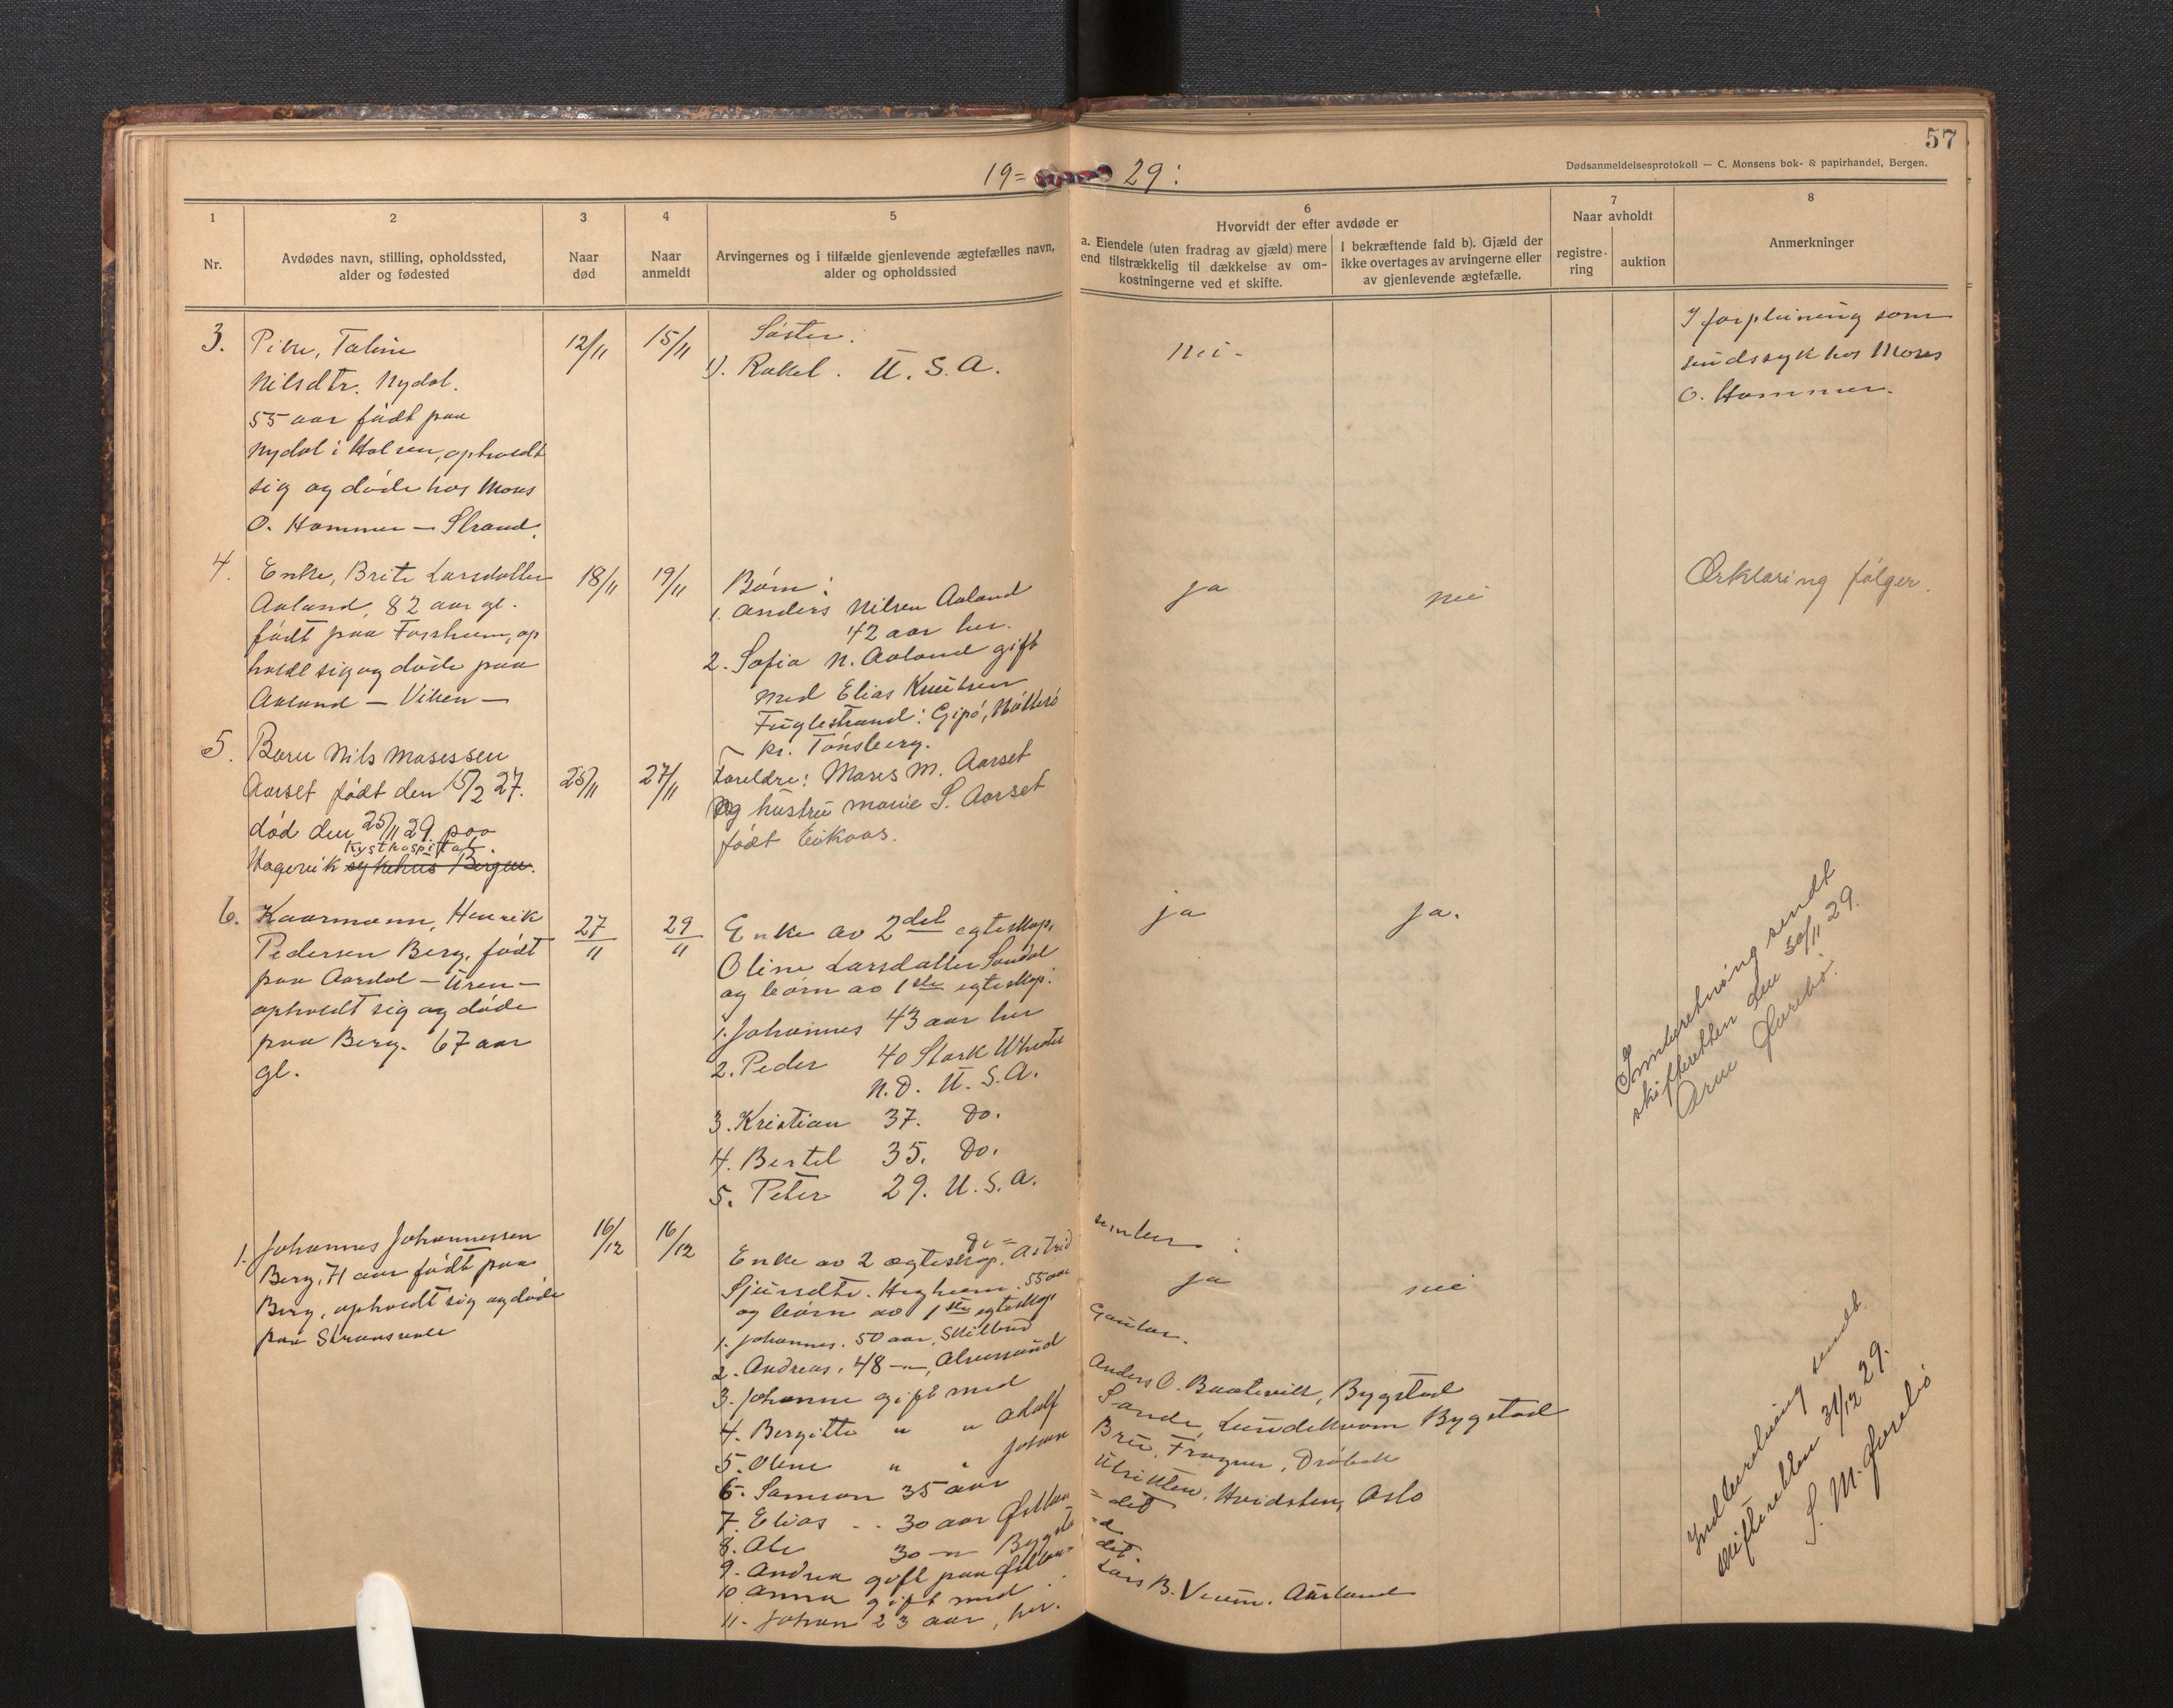 57
Dødsanmeldelsesprotokoll — C. Monsens bok- & papirhandel, Bergen.
19= 29:
1
Nr.
2
Avdødes navn, stilling, opholdssted,
alder og fødested
3
Naar
død
4
Naar
anmeldt
5
Arvingernes og i tilfælde gjenlevende ægtefælles navn,
alder og opholdssted
6
Hvorvidt der efter avdøde er
a. Eiendele (uten fradrag av gjæld) mere
end tilstrækkelig til dækkelse av om-
kostningerne ved et skifte.
I bekræftende fald b). Gjæld der
ikke overtages av arvingerne eller
av gjenlevende ægtefælle.
7
Naar avholdt
registre-
ring
auktion
8
Anmerkninger
3. Pike, Taline
Nilsdtr. Nydal.
55 aar født paa
Nydal i Holsen, opholdt
sig og døde hos Moses
O. Hammer — Strand.
12/11
15/11
Søster:
1). Rakel. U. S. A.
nei -
I forpleining som
sindssyk hos Moses
O. Hammer.
4. Enke, Brite Larsdatter
Aaland, 82 aar gl.
født paa Farsheim, op
holdt sig og døde paa
Aaland — Viken —
18/11
19/11
Børn:
1. Anders Nilsen Aaland
42 aar her.
2. Sofia N. Aaland gift
med Elias Knutsen
Fuglestrand: Gipø, Nøtterø
pr. Tønsberg.
ja
nei
Erklæring følger.
5. Barn Nils Mosessen
Aarset født den 15/2 27.
død den 25/11 29. paa
Kysthospital.
Hagevik sykehus Bergen.
25/11
27/11
Foreldre: Moses M. Aarset
og hustru Marie S. Aarset
født Eikaas.
6. Kaarmann, Henrik
Pedersen Berg, født
paa Aardal — Uren —
opholdt sig og døde
paa Berg. 67 aar
gl.
27/11
29/11
Enke av 2det egteskap,
Oline Larsdatter Sandal
og børn av 1ste egteskap:
1. Johannes 43 aar her
2. Peder 40 Stark
N.D. U. S. A.
3. Kristian 37. Do.
4. Bertel 35. Do.
5. Peter 29. U. S. A.
ja
ja.
Innberetning sendt
skifteretten den 30/11 29.
Arne Førebø.
1. Johannes Johannessen
Berg, 71 aar født paa
Berg, opholdt sig og døde
paa
16/12
16/12
De= sember:
Enke av 2 ægteskap. Astrid
Sjursdtr. 55 aar
og børn av 1ste egteskap
1. Johannes. 50 aar, Skilbred Gaular.
2. Andreas, 48 —"—, Alversund
3. Johanne gift med Anders O. Baatevik, Bygstad
4. Bergitte " " Adolf Sande, Lundekvam Bygstad
5. Oline " " Johan Bru. Frogner, Drøbak
6. Samson 35 aar Hvidsten, Oslo
7. Elias .. 30 aar Østlan=det
8. Ole 30 —"— Bygsta=d
9. Andrea gift paa Østlan=det.
10 Anna gift med Lars B. Aurland
11. Johan 23 aar, her.
ja
nei
Indberetning sendt
skifteretten 31/12 29.
S. M. Førebø